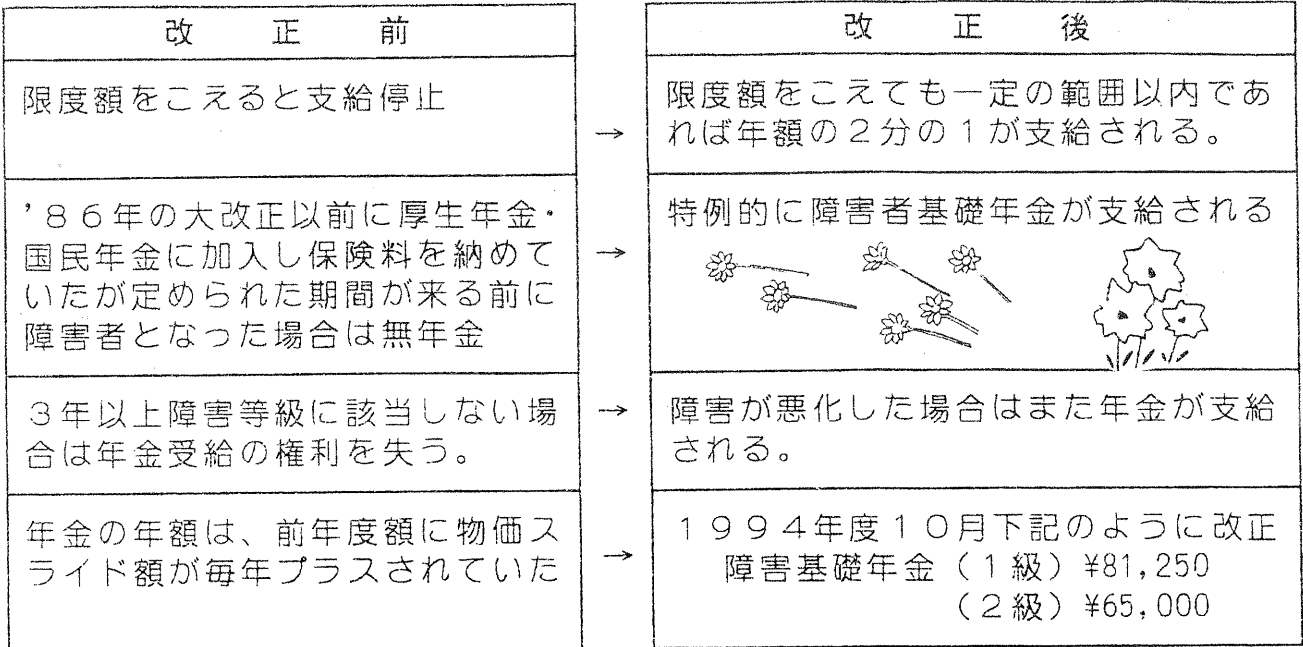 改正前
改正後
限度額をこえると支給停止
→
限度額をこえても一定の範囲以内であ
れば年額の２分の１が支給される。
’８６年の大改正以前に厚生年金・
国民年金に加入し保険料を納めて
いたが定められた期間が来る前に
障害者となった場合は無年金
→
特例的に障害者基礎年金が支給される
３年以上障害等級に該当しない場
合は年金受給の権利を失う。
→
障害が悪化した場合はまた年金が支給
される。
年金の年額は、前年度額に物価ス
ライド額が毎年プラスされていた
→
１９９４年度１０月下記のように改正
障害基礎年金（１級）¥81,250
（２級）¥65,000